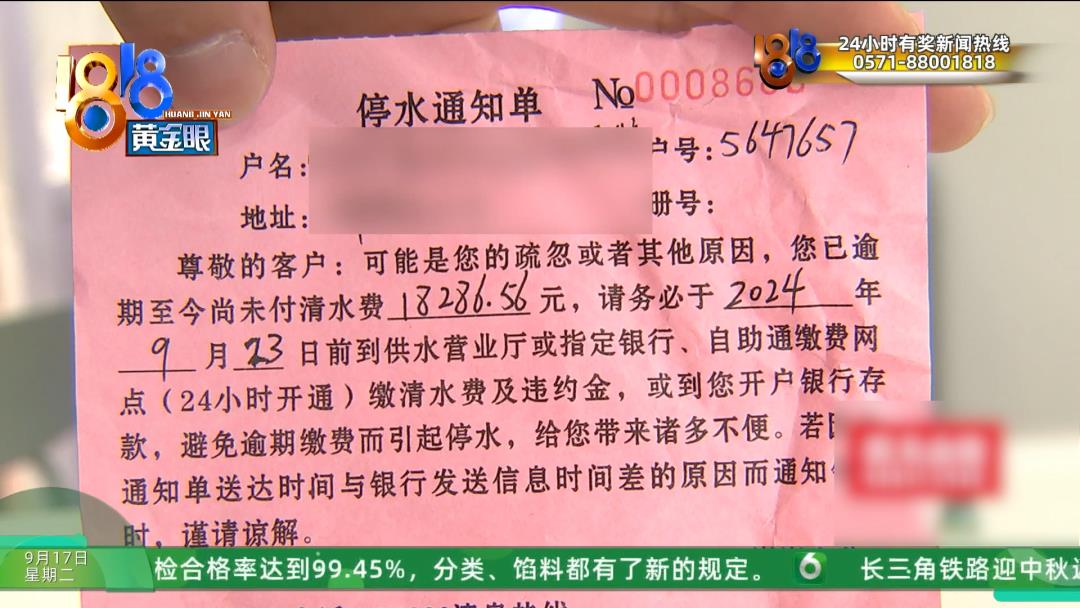 1818
HUANG JIN YAN
黄金眼
1818
24小时有奖新闻热线
0571-88001818
停水通知单 №00086
户名: 户号:5647657
地址: 册号:
尊敬的客户:可能是您的疏忽或者其他原因,您已逾
期至今尚未付清水费18286.56元,请务必于2024年
9月23日前到供水营业厅或指定银行、自助通缴费网
点(24小时开通)缴清水费及违约金,或到您开户银行存
款,避免逾期缴费而引起停水,给您带来诸多不便。若因
通知单送达时间与银行发送信息时间差的原因而通知
时,谨请谅解。
9月17日
星期二
检合格率达到99.45%,分类、馅料都有了新的规定。 6 长三角铁路迎中秋